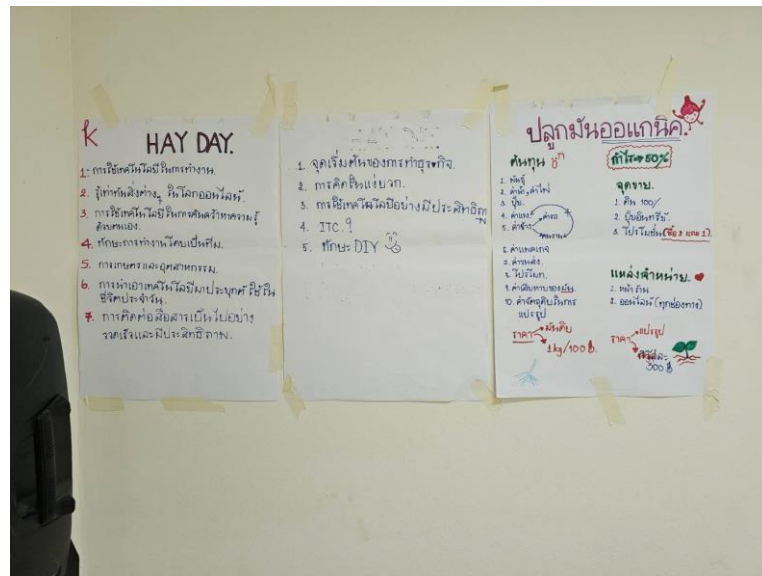 K HAY DAY.
1. การใช้เทคโนโลยีในการทำงาน.
2. รู้เท่าทันสิ่งต่างๆ ในโลกออนไลน์.
3. การใช้เทคโนโลยีในการค้นคว้าหาความรู้
ด้วยตนเอง.
4. ทักษะการทำงานโดยเป็นทีม.
5. การเกษตรและอุตสาหกรรม.
6. การนำเอาเทคโนโลยีมาประยุกต์ใช้ใน
ชีวิตประจำวัน.
7. การติดต่อสื่อสารเป็นไปอย่าง
รวดเร็วและมีประสิทธิภาพ.
1. จุดเริ่มต้นของการทำธุรกิจ.
2. การคิดในแง่บวก.
3. การใช้เทคโนโลยีอย่างมีประสิทธิภาพ
4. ITC.?
5. ทักษะ DIY
ปลูกมันออแกนิค.
ต้นทุน
1. พันธุ์
2. ค่าน้ำ, ค่าไฟ
3. ปุ๋ย.
4. ค่าแรง
5. ค่าจ้าง
คนงาน
6. ค่าแพคเกจ
7. ค่าขนส่ง.
8. โปรโมท.
9. ค่าเดินทาง
10. ค่าวัตถุดิบในการ
แปรรูป
ราคา มันดิบ
1kg/100 ฿.
กำไร 50%
จุดขาย.
1. ดิน 100%
2. ปุ๋ยอินทรีย์.
3. โปรโมชั่น (ซื้อ 2 แถม 1).
แหล่งจำหน่าย.
1. หน้าร้าน
2. ออนไลน์ (ทุกช่องทาง)
ราคา แปรรูป
300 ฿